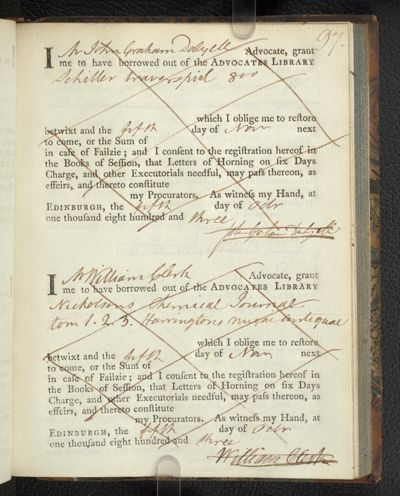 97.
I Mr John Graham Dalyell Advocate, grant
me to have borrowed out of the ADVOCATES LIBRARY
Schiller trauerspiel 8vo
which I oblige me to restore
betwixt and the fifth day of Novr next
to come, or the Sum of
in case of Failzie; and I consent to the registration hereof in
the Books of Session, that Letters of Horning on six Days
Charge, and other Executorials needful, may pass thereon, as
effeirs, and thereto constitute
my Procurators. As witness my Hand, at
EDINBURGH, the fifth day of Octr
one thousand eight hundred and three
John Graham Dalyell
I Mr William Clerk Advocate, grant
me to have borrowed out of the ADVOCATES LIBRARY
Nicholsons Chemical Journal
tom 1. 2. 3. Harringtons nugae antiquae
which I oblige me to restore
betwixt and the fifth day of Novr next
to come, or the Sum of
in case of Failzie; and I consent to the registration hereof in
the Books of Session, that Letters of Horning on six Days
Charge, and other Executorials needful, may pass thereon, as
effeirs, and thereto constitute
my Procurators. As witness my Hand, at
EDINBURGH, the fifth day of Octr
one thousand eight hundred and three
William Clerk